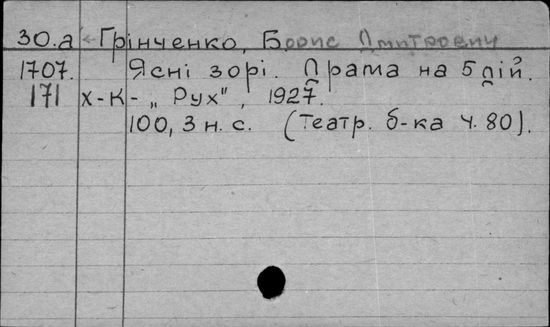 30.а Грінченко, Борис Дмитрович
1707. Ясні зорі. Драма на 5 дій.
171 Х-К - „Рух", 1927.
100, 3 н. с. (Театр. б-ка ч. 80).